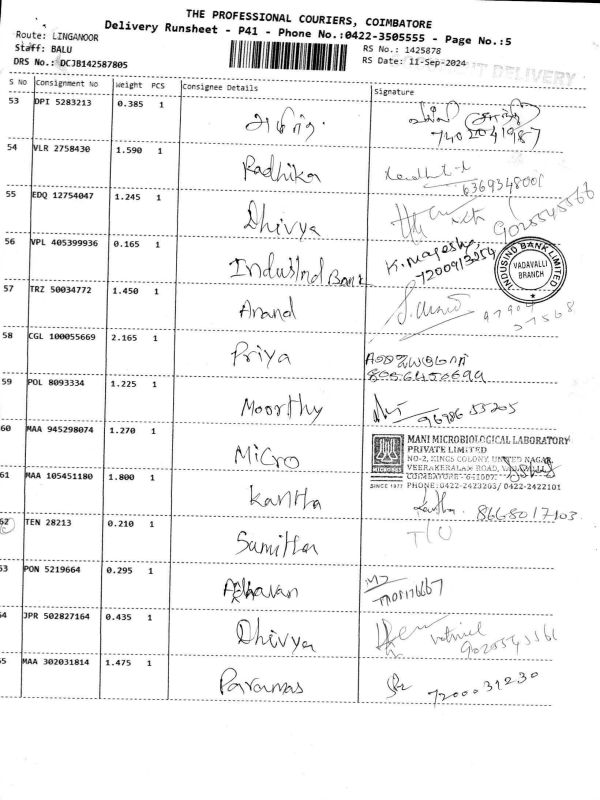 THE PROFESSIONAL COURIERS, COIMBATORE
Delivery Runsheet - P41 - Phone No.:0422-3505555 - Page No.:5
Route: LINGANOOR
Staff: BALU
DRS No.: DCJB142587805
RS No.: 1425878
RS Date: 11-Sep-2024
DELIVERY
S No Consignment No Weight PCS Consignee Details Signature
53 DPI 5283213 0.385 1
54 VLR 2758430 1.590 1 Radhika 6369348001
55 EDQ 12754047 1.245 1 Dhivya
56 VPL 405399936 0.165 1 IndusInd Bank K. Magesh
INDUSIND BANK LIMITED
VADAVALLI
BRANCH
57 TRZ 50034772 1.450 1 Anand
58 CGL 100055669 2.165 1 Priya
59 POL 8093334 1.225 1 Moorthy
60 MAA 945298074 1.270 1 Micro
MANI MICROBIOLOGICAL LABORATORY
PRIVATE LIMITED
NO-2, KINGS COLONY, UNITED NAGAR,
VEERAKERALAM ROAD, VADAVALLI
COIMBATORE - 641007
SINCE 1977 PHONE: 0422-2423203/ 0422-2422101
61 MAA 105451180 1.800 1 Kavitha 8668017103
62 TEN 28213 0.210 1 Sumitha
63 PON 5219664 0.295 1
64 JPR 502827164 0.435 1 Dhivya
65 MAA 302031814 1.475 1 Paramas 7200031230